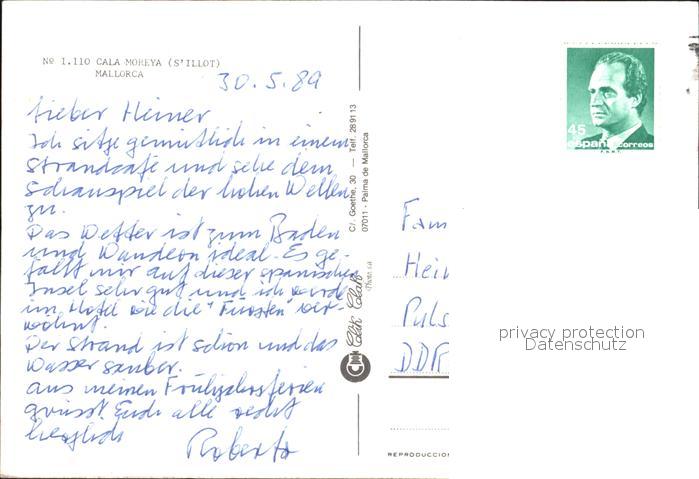 Nº 1.110 CALA MOREYA (S'ILLOT)
MALLORCA
30.5.89
Lieber Heiner
Ich sitze gemütlich in einem
Strandcafé und sehe dem
Schauspiel der hohen Wellen
zu.
Das Wetter ist zum Baden
und Wandern ideal. Es ge-
fällt mir auf dieser spanischen
Insel sehr gut und ich werde
im Hotel wie die "Fürsten" ver-
wöhnt.
Der Strand ist schön und das
Wasser sauber.
Aus meinen Frühjahrsferien
grüsst Euch alle recht
herzlich
Roberto
C/. Goethe, 30 — Telf. 289113
07011 - Palma de Mallorca
Clik Clak
Photo s.a
45
españa correos
F.N.M.T.
Fam
Hein
Puls
DDR
privacy protection
Datenschutz
REPRODUCCION